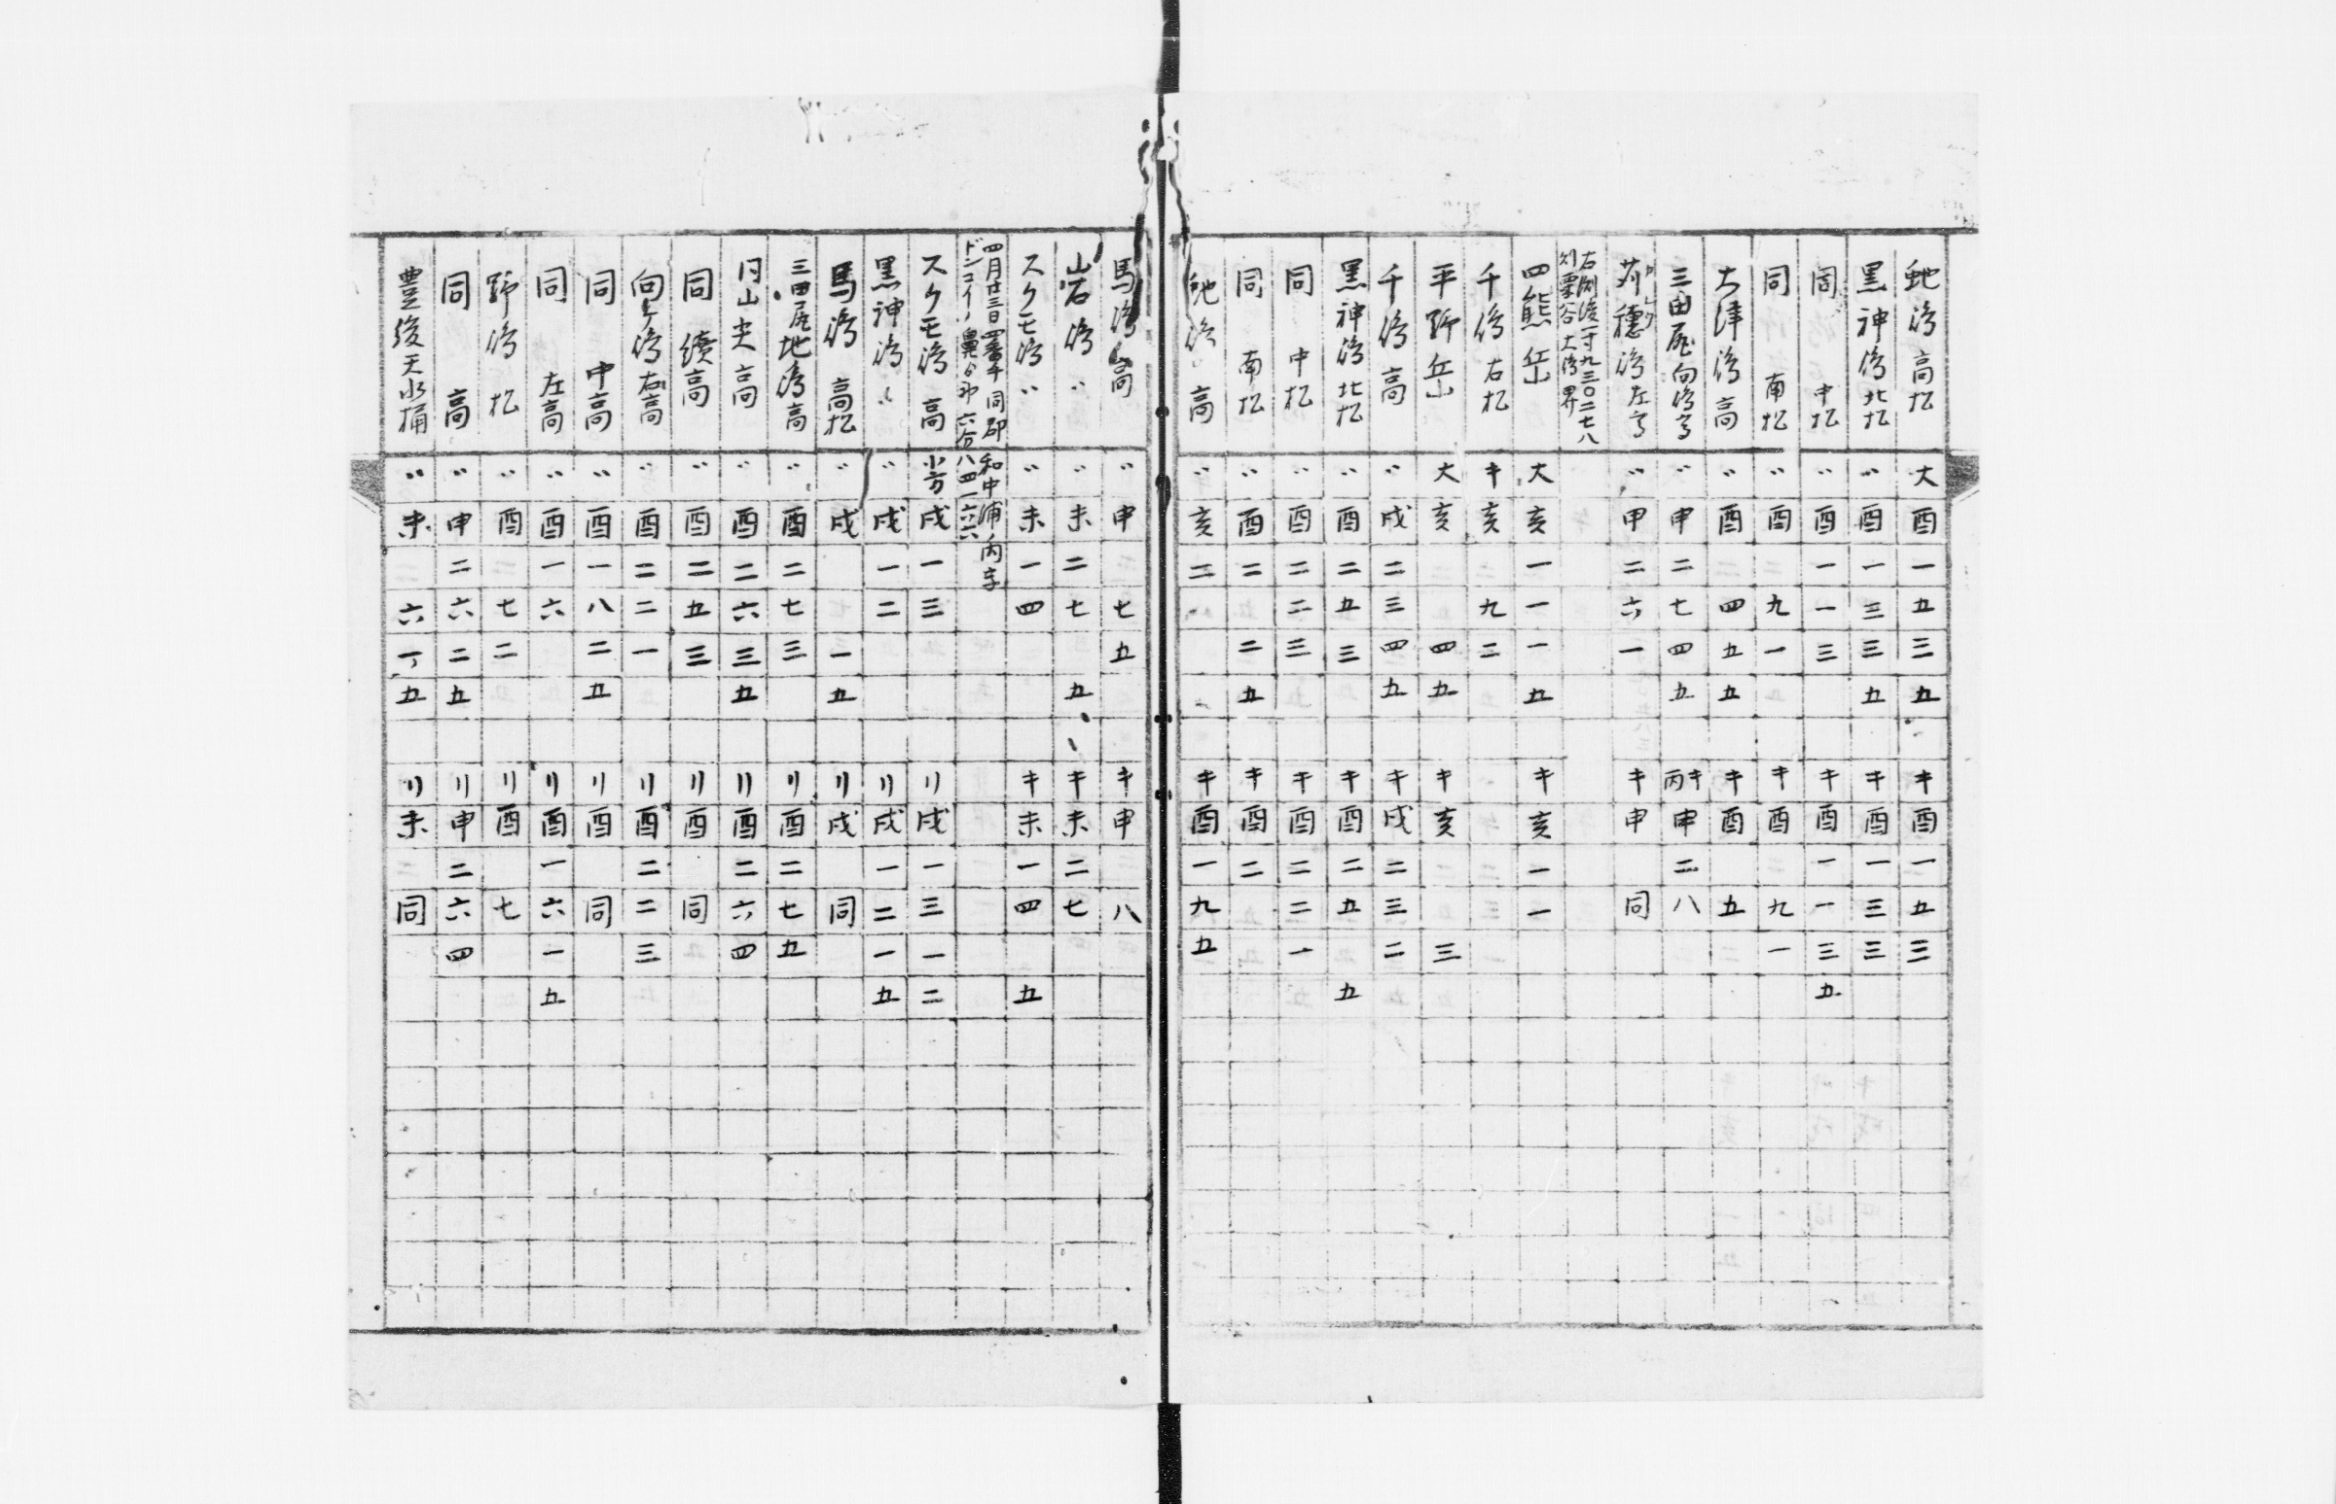 蛇嶋高松 大酉一五三五 キ酉一五三
黒神嶋北松 〃酉一三三五 キ酉一三三
同中松 〃酉一一三 キ酉一一三五
同南松 〃酉九一 キ酉九一
大津嶋高 〃酉四五五 キ酉五
三田尻向嶋高 〃申二七四五 キ丙申二八
苅穂嶋左高 〃申二六一 キ申同
右測後一寸九三〇二七八
刈粟谷大嶋界
四熊岳 大亥一一一五 キ亥一一
千嶋右松 キ亥九二
平野岳 大亥四五 キ亥三
千嶋高 〃戌二三四九 キ戌二三二
黒神嶋北松 〃酉二五三 キ酉二五五
同中松 〃酉二二三 キ酉二二一
同南松 〃酉二二五 キ酉二
蛇嶋高 〃亥二 キ酉一九五
馬嶋高 〃申七五 キ申八
岩嶋〃 〃未二七五 キ未二七
スクモ嶋〃 〃未一四 キ未一四五
四月廿三日四番手同郡和中浦ノ内字
ドンコイノ鼻 六分八四一六六
スクモ嶋高 小方戌一三 リ戌一三一二
黒神嶋〃 〃戌一二 リ戌一二一五
馬嶋高松 〃戌一五 リ戌同
三田尻地嶋高 〃酉二七三 リ酉二七五
同山尖高 〃酉二六三五 リ酉二六四
同續高 〃酉二五三 リ酉同
向ケ嶋右高 〃酉二二一 リ酉二二三
同中高 〃酉一八二五 リ酉同
同左高 〃酉一六 リ酉一六一五
野嶋松 〃酉七二 リ酉七
同高 〃申二六二五 リ申二六四
豊後天水桶 〃未六一五 リ未同